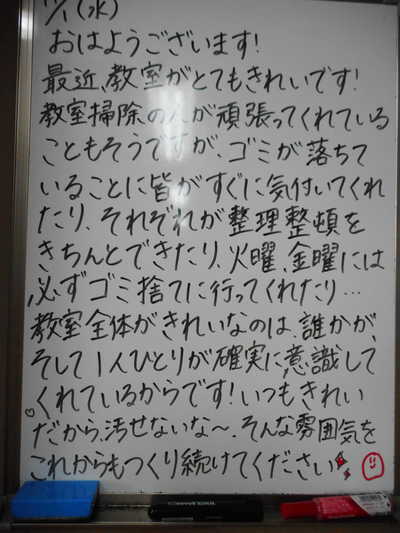 11/1(水)
おはようございます!
最近、教室がとてもきれいです!
教室掃除の人が頑張ってくれている
こともそうですが、ゴミが落ちて
いることに皆がすぐに気付いてくれ
たり、それぞれが整理整頓を
きちんとできたり、火曜、金曜には
必ずゴミ捨てに行ってくれたり…
教室全体がきれいなのは、誰かが、
そして1人ひとりが確実に意識して
くれているからです!いつもきれい
だから、汚せないな〜、そんな雰囲気を
これからもつくり続けてください